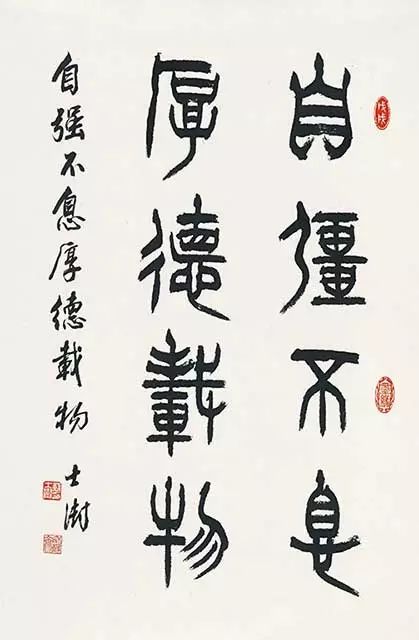 戊戌
自彊不息
厚德載物
自强不息厚德載物 士澍